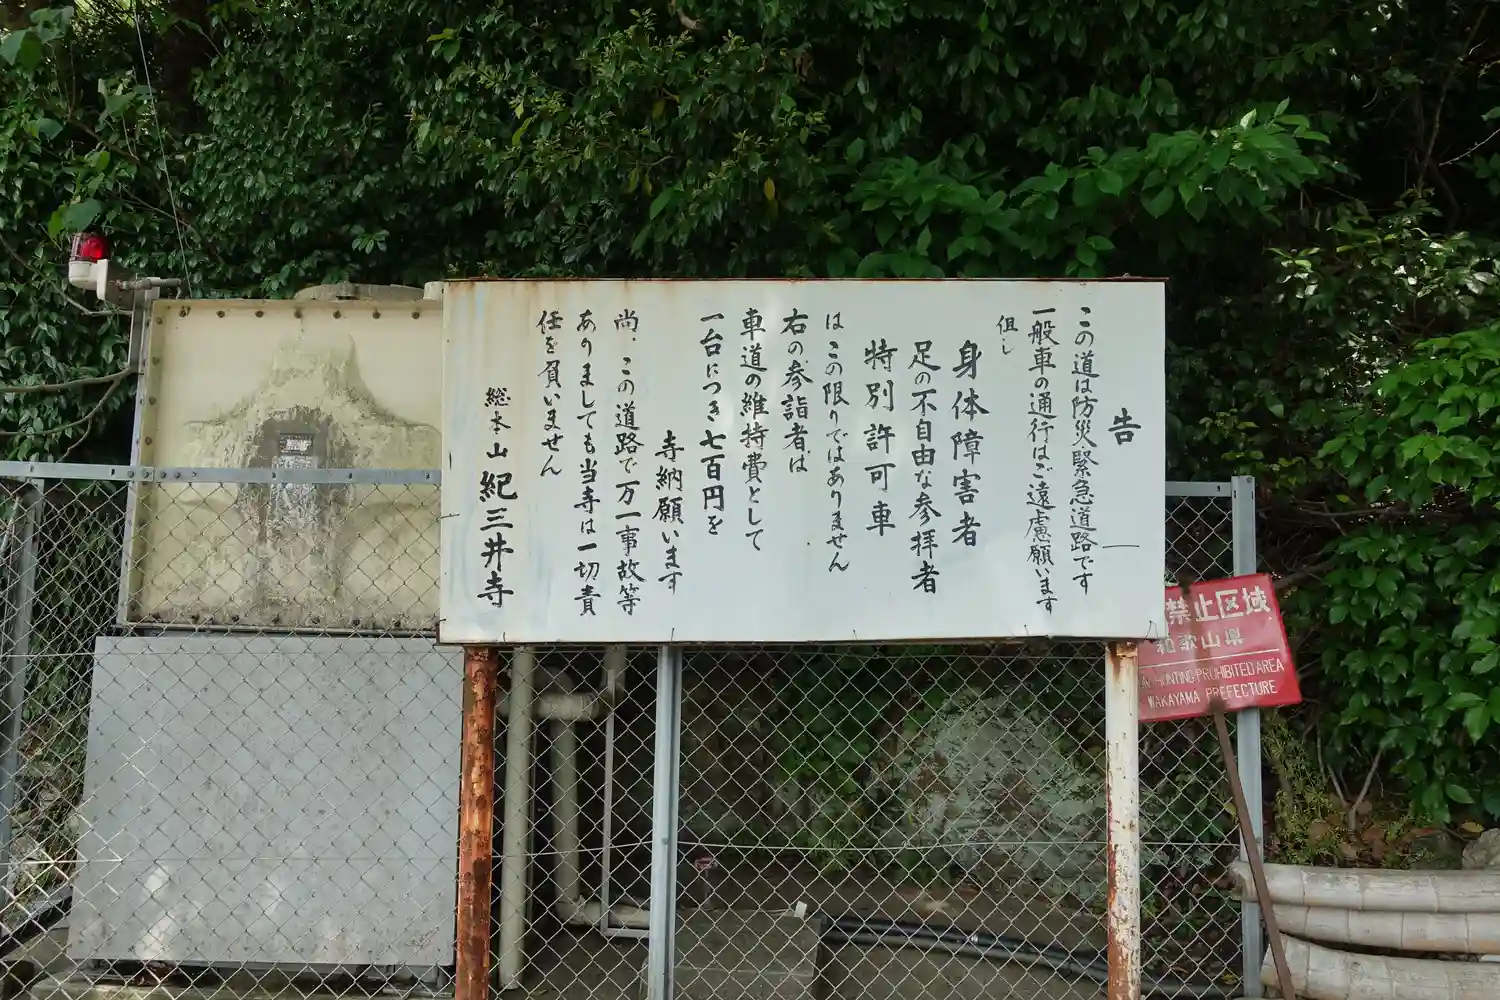 告
この道は防災・緊急道路です
一般車の通行はご遠慮願います
但し
身体障害者
足の不自由な参拝者
特別許可車
はこの限りではありません
右の参詣者は
車道の維持費として
一台につき七百円を
寺納願います
尚、この道路で万一事故等
ありましても当寺は一切責
任を負いません
総本山紀三井寺
禁止区域
和歌山県
HUNTING PROHIBITED AREA
WAKAYAMA PREFECTURE